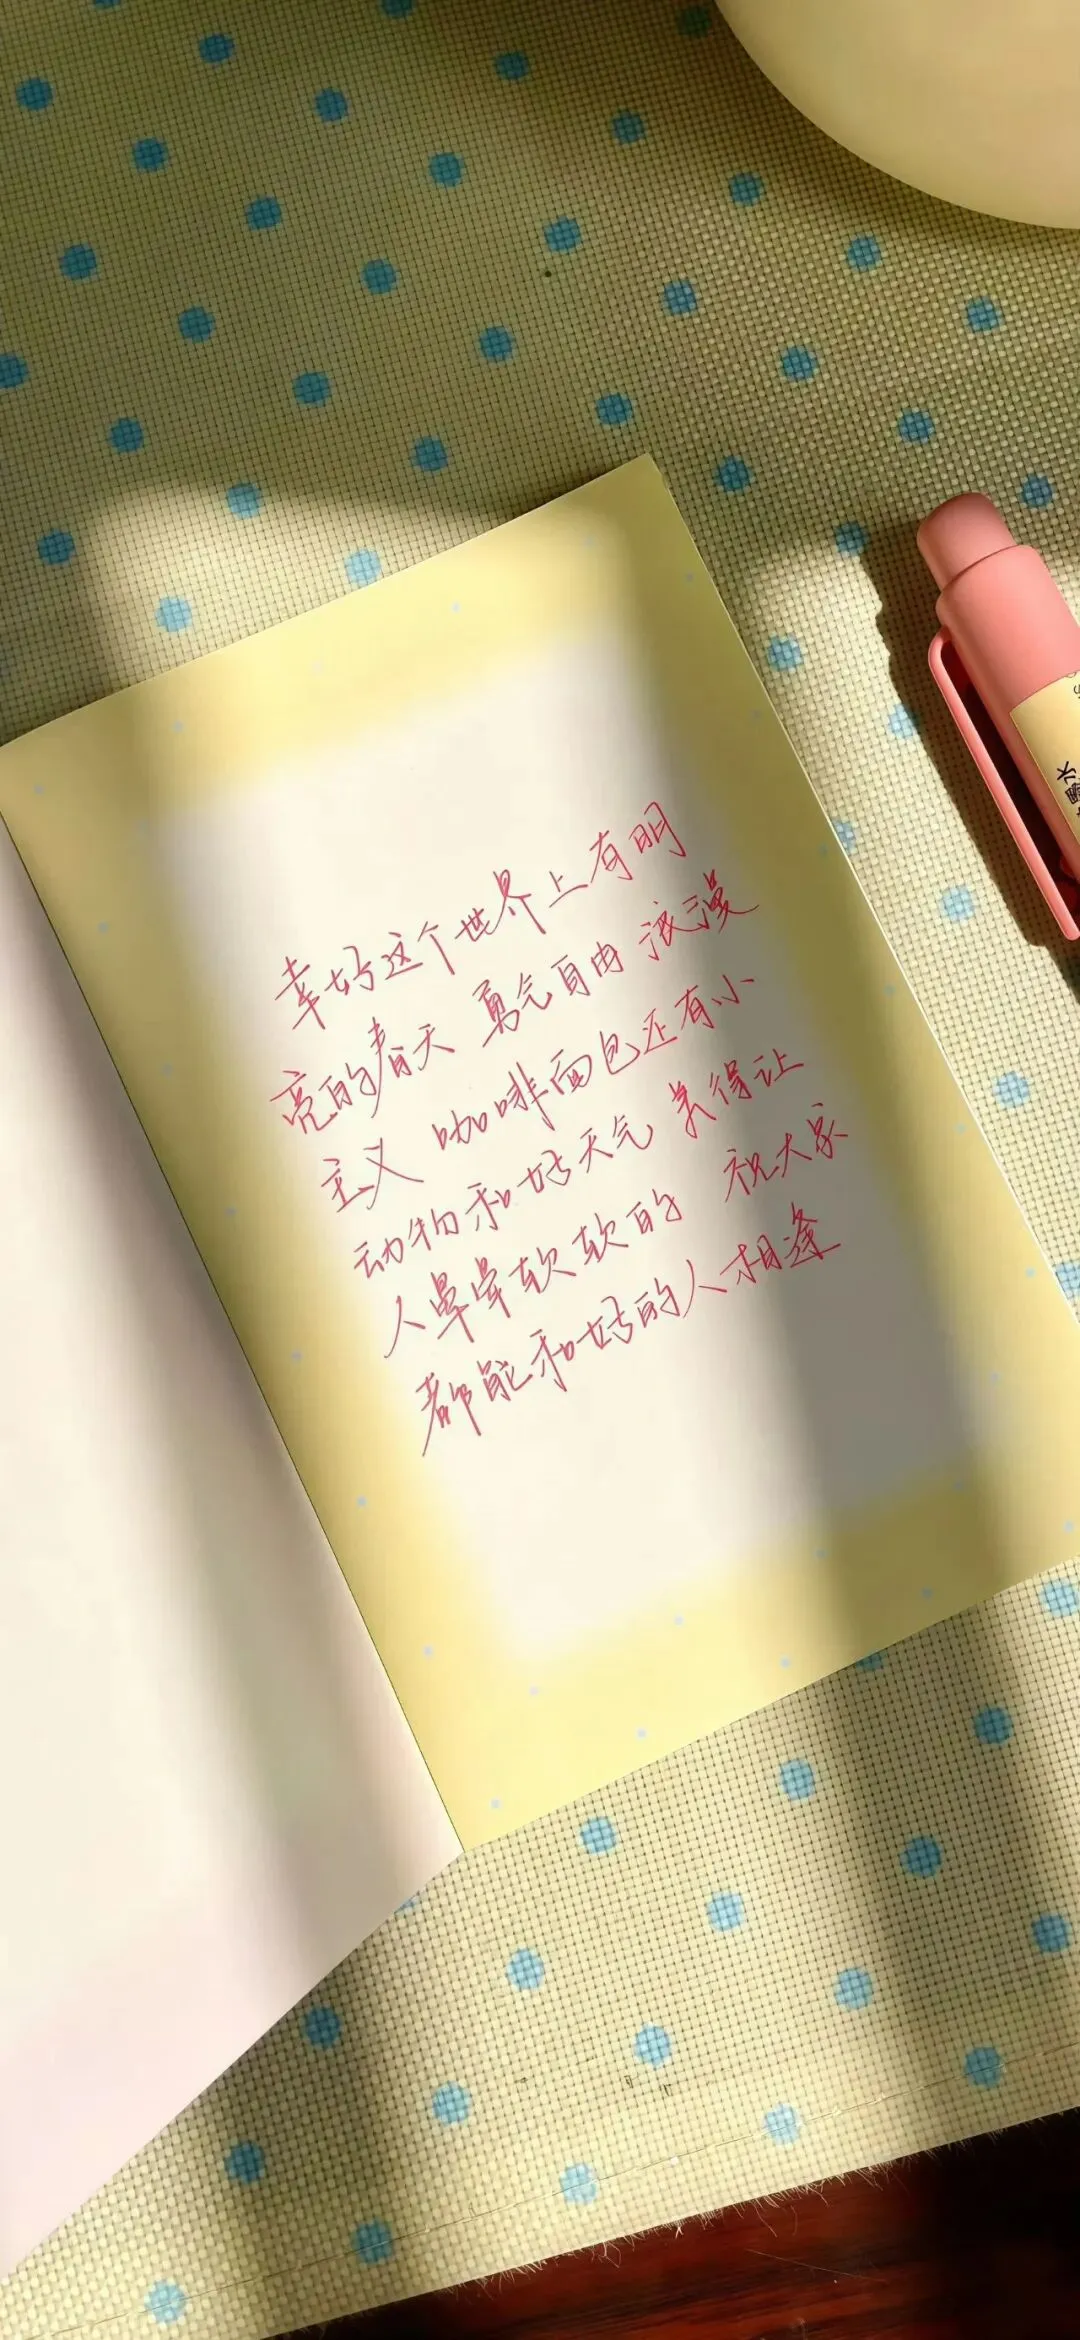 幸好这个世界上有明
亮的春天 勇气自由 浪漫
主义 咖啡面包还有小
动物和好天气 美得让
人晕晕软软的 祝大家
都能和好的人相逢
墨水